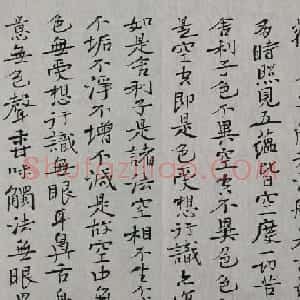 多時照見五蘊皆空度一切苦
舍利子色不異空空不異色色
是空空即是色受想行識亦
如是舍利子是諸法空相不生
不垢不淨不增不減是故空中
色無受想行識無眼耳鼻舌
意無色聲香味觸法無眼界